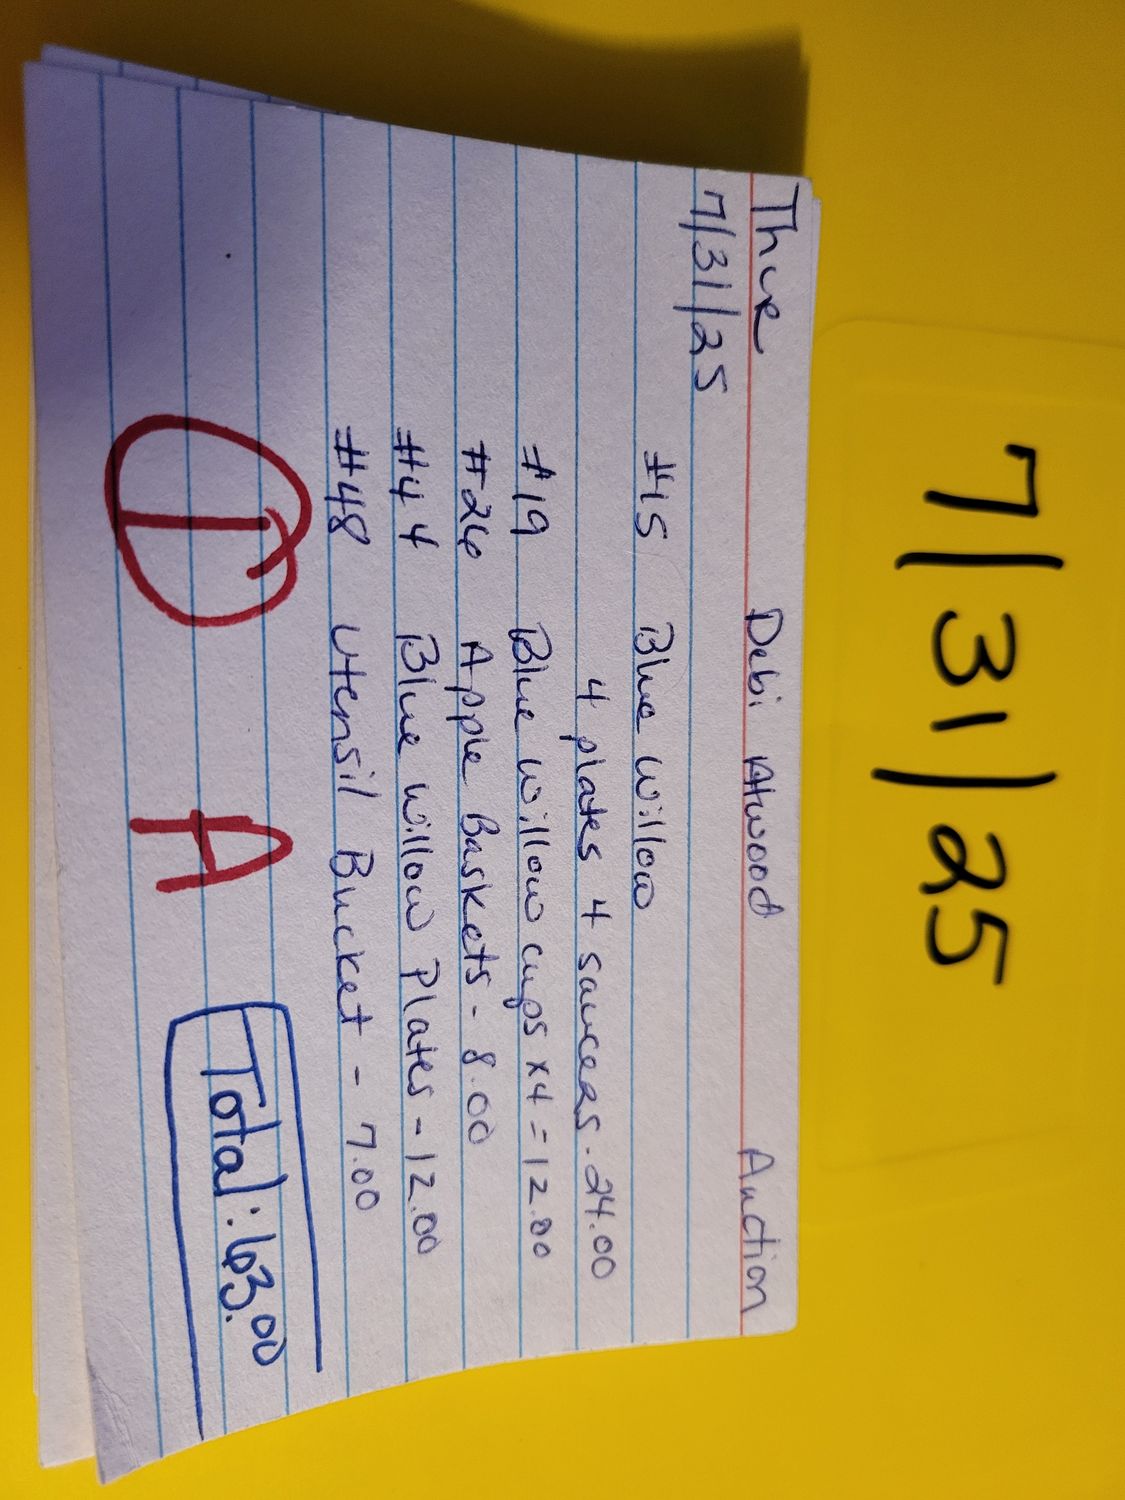 7/31/25
Thur Debi Atwood Auction
7/31/25
#15 Blue Willow
4 plates 4 saucers - 24.00
#19 Blue Willow cups x4 = 12.00
#26 Apple Baskets - 8.00
#44 Blue Willow Plates - 12.00
#48 Utensil Bucket - 7.00
Total: 63.00
1 A